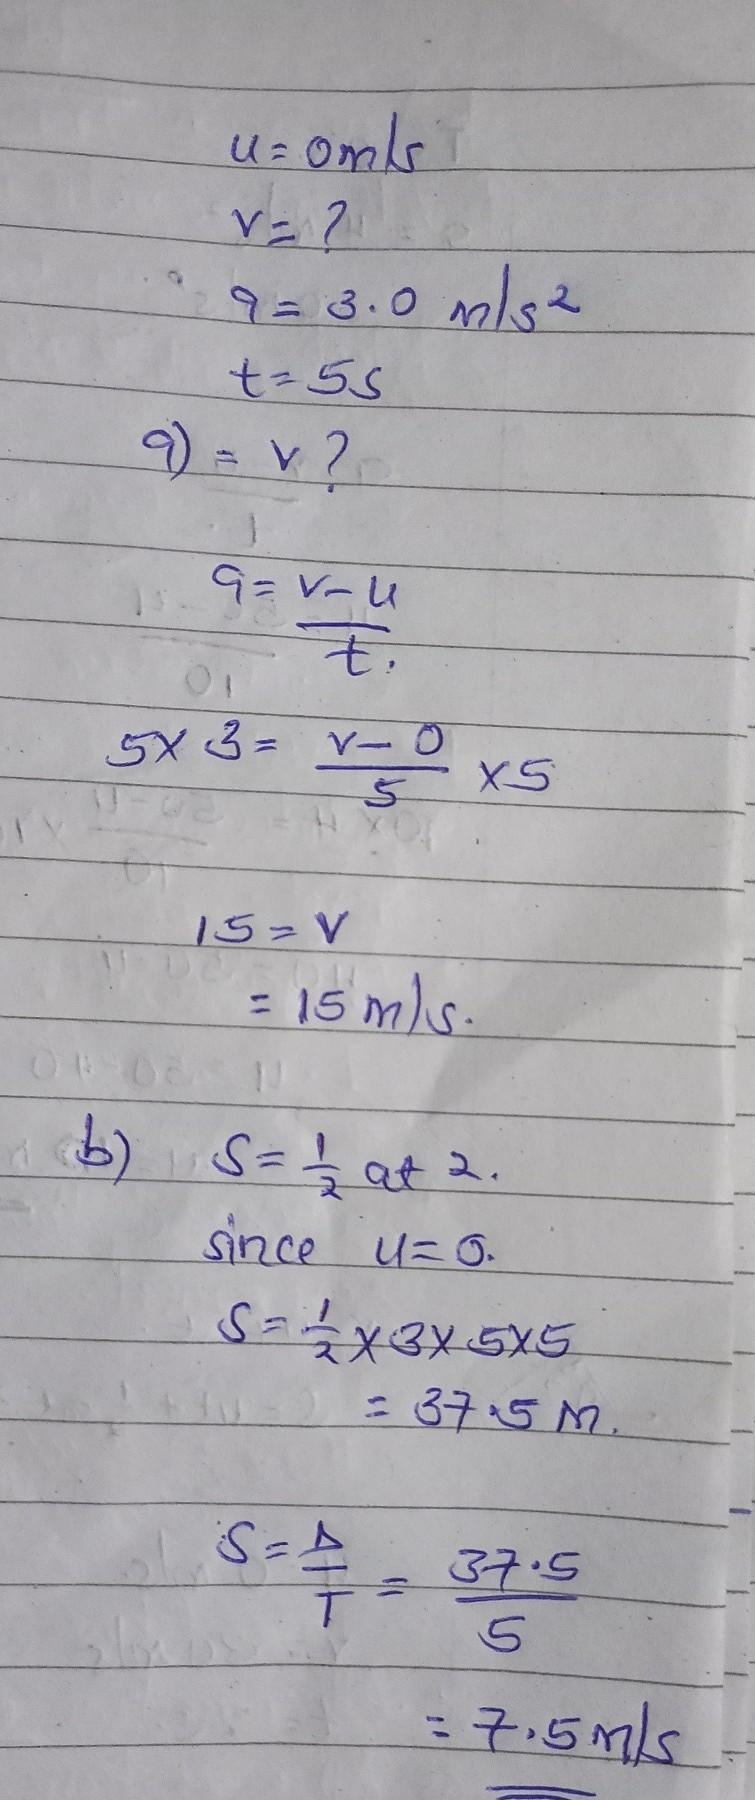 u = 0m/s
v = ?
a = 3.0 m/s²
t = 5s
a) = v ?
a = v - u / t.
5 x 3 = v - 0 / 5 x 5
15 = v
= 15 m/s.
b) S = 1/2 at 2.
since u = 0.
S = 1/2 x 3 x 5 x 5
= 37.5 m.
S = D / T = 37.5 / 5
= 7.5 m/s